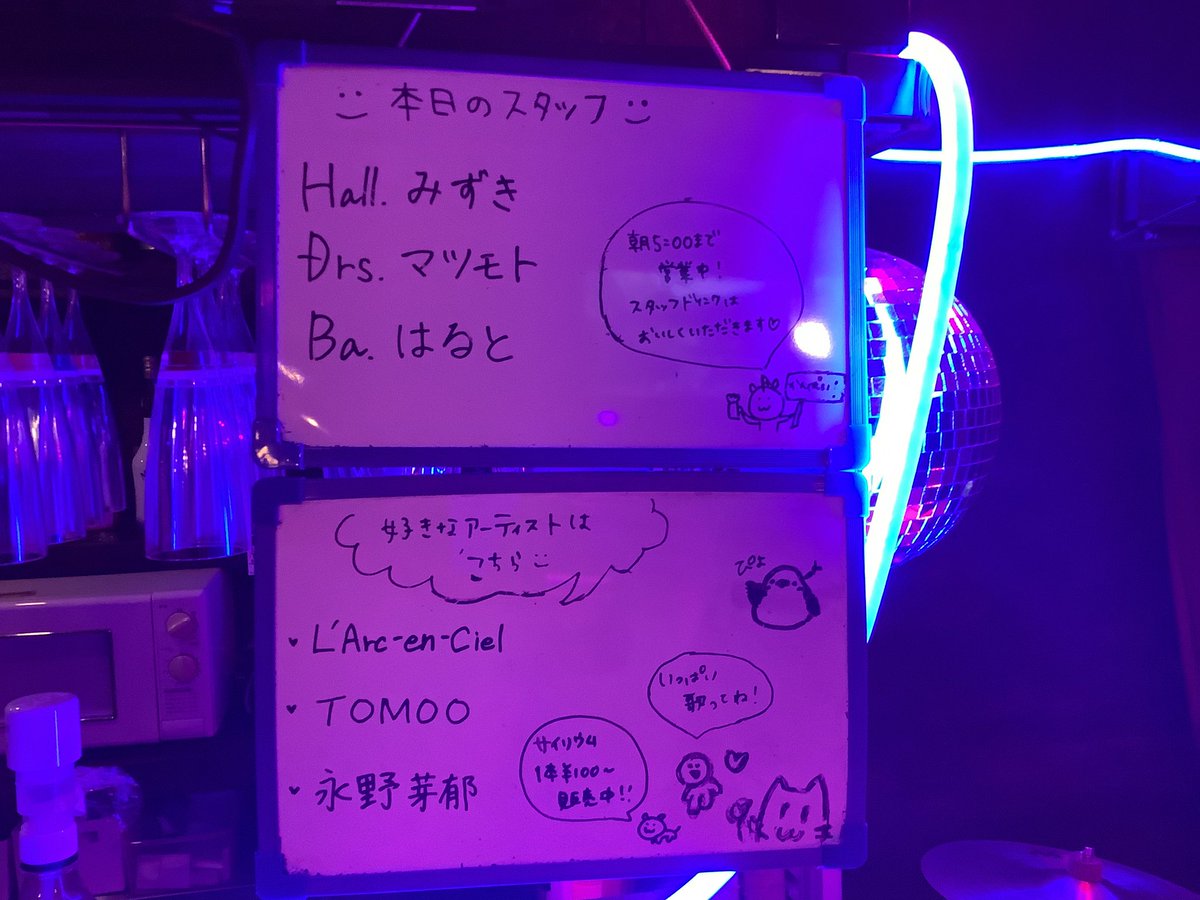 本日のスタッフ
Hall. みずき
Drs. マツモト
Ba. はると
朝5:00まで
営業中!
スタッフドリンクは
おいしくいただきます♡
好きなアーティストは
こちら
♥ L'Arc-en-Ciel
♥ TOMOO
♥ 永野芽郁
ぴよ
いっぱい
歌ってね!
サイリウム
1本¥100〜
販売中!!